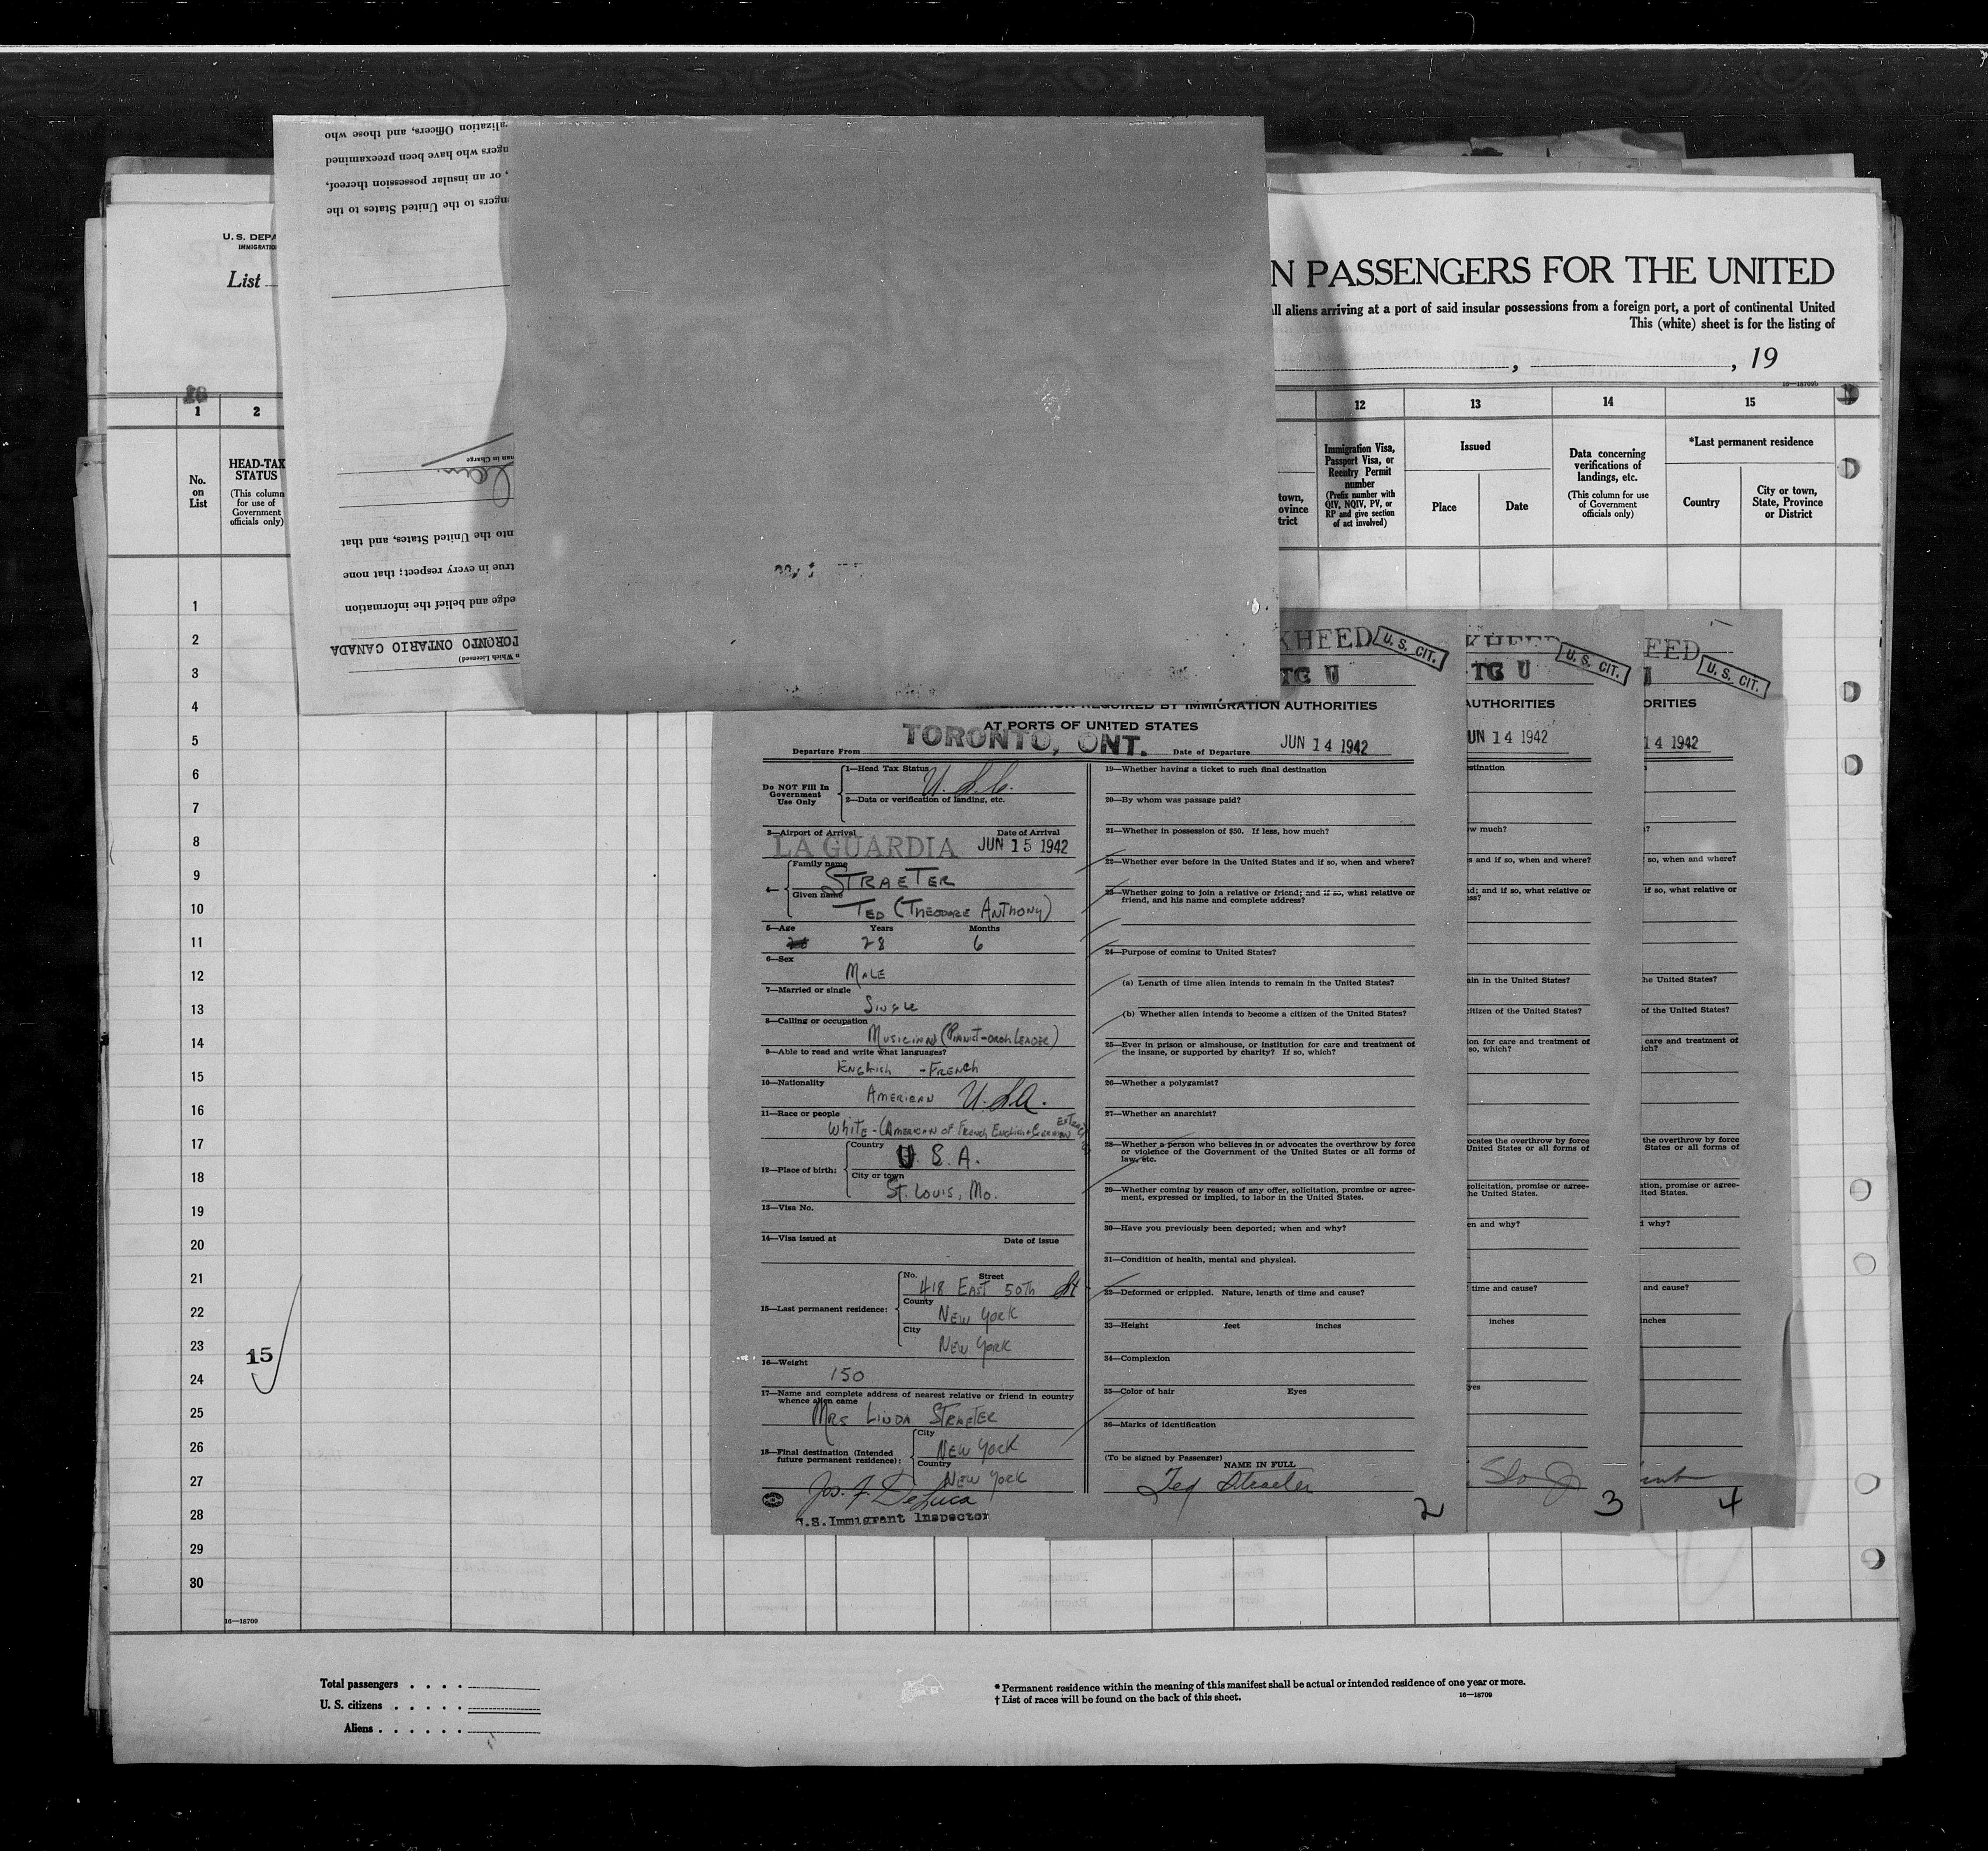 alization Officers, and those who
ngers who have been preexamined
, or an insular possession thereof,
ngers to the United States to the
U. S. DEPA
IMMIGRATIO
List
N PASSENGERS FOR THE UNITED
ll aliens arriving at a port of said insular possessions from a foreign port, a port of continental United
This (white) sheet is for the listing of
, , 19
16—18709b
1 2 12 13 14 15
No. on List
HEAD-TAX STATUS
(This column for use of Government officials only)
nto the United States, and that
true in every respect; that none
edge and belief the information
TORONTO ONTARIO CANADA
n Which Licensed)
town,
ovince
trict
Immigration Visa, Passport Visa, or Reentry Permit number
(Prefix number with QIV, NQIV, PV, or RP and give section of act involved)
Issued
Place Date
Data concerning verifications of landings, etc.
(This column for use of Government officials only)
*Last permanent residence
Country
City or town, State, Province or District
1
2
3
4
5
6
7
8
9
10
11
12
13
14
15
16
17
18
19
20
21
22
23
24
25
26
27
28
29
30
15
16—18709
KHEED U. S. CIT.
TC U
REQUIRED BY IMMIGRATION AUTHORITIES
AT PORTS OF UNITED STATES
Departure From TORONTO, ONT. Date of Departure JUN 14 1942
Do NOT Fill In Government Use Only
1—Head Tax Status U.S.C.
2—Data or verification of landing, etc.
3—Airport of Arrival LA GUARDIA Date of Arrival JUN 15 1942
4— Family name STRAETER
Given name TED (THEODORE ANTHONY)
5—Age Years 28 Months 6
6—Sex MALE
7—Married or single SINGLE
8—Calling or occupation MUSICIAN (PIANIST-ORCH LEADER)
9—Able to read and write what languages?
ENGLISH - FRENCH
10—Nationality AMERICAN U.S.A.
11—Race or people
WHITE - (AMERICAN OF FRENCH ENGLISH & GERMAN
12—Place of birth: Country U. S. A.
City or town St. LOUIS, MO.
13—Visa No.
14—Visa issued at Date of issue
15—Last permanent residence: No. Street 418 EAST 50TH St
County NEW YORK
City NEW YORK
16—Weight 150
17—Name and complete address of nearest relative or friend in country
whence alien came
MRS LINDA STRAETER
18—Final destination (Intended future permanent residence): City NEW YORK
Country NEW YORK
Jos. F. DeLuca
U.S. Immigrant Inspector
19—Whether having a ticket to such final destination
20—By whom was passage paid?
21—Whether in possession of $50. If less, how much?
22—Whether ever before in the United States and if so, when and where?
23—Whether going to join a relative or friend; and if so, what relative or
friend, and his name and complete address?
24—Purpose of coming to United States?
(a) Length of time alien intends to remain in the United States?
(b) Whether alien intends to become a citizen of the United States?
25—Ever in prison or almshouse, or institution for care and treatment of
the insane, or supported by charity? If so, which?
26—Whether a polygamist?
27—Whether an anarchist?
28—Whether a person who believes in or advocates the overthrow by force
or violence of the Government of the United States or all forms of
law, etc.
29—Whether coming by reason of any offer, solicitation, promise or agree-
ment, expressed or implied, to labor in the United States.
30—Have you previously been deported; when and why?
31—Condition of health, mental and physical.
32—Deformed or crippled. Nature, length of time and cause?
33—Height feet inches
34—Complexion
35—Color of hair Eyes
36—Marks of identification
(To be signed by Passenger)
NAME IN FULL
Ted Straeter
2
KHEED U. S. CIT.
TC U
AUTHORITIES
UN 14 1942
estination
w much?
s and if so, when and where?
nd; and if so, what relative or
ess?
ain in the United States?
citizen of the United States?
ion for care and treatment of
so, which?
ocates the overthrow by force
United States or all forms of
solicitation, promise or agree-
he United States.
en and why?
time and cause?
inches
yes
3
EED U. S. CIT.
ORITIES
14 1942
so, when and where?
if so, what relative or
he United States?
of the United States?
care and treatment of
ich?
the overthrow by force
States or all forms of
ation, promise or agree-
ited States.
l why?
and cause?
inches
4
Total passengers . . . .
U. S. citizens . . . . .
Aliens . . . . . .
* Permanent residence within the meaning of this manifest shall be actual or intended residence of one year or more.
† List of races will be found on the back of this sheet.
16—18709